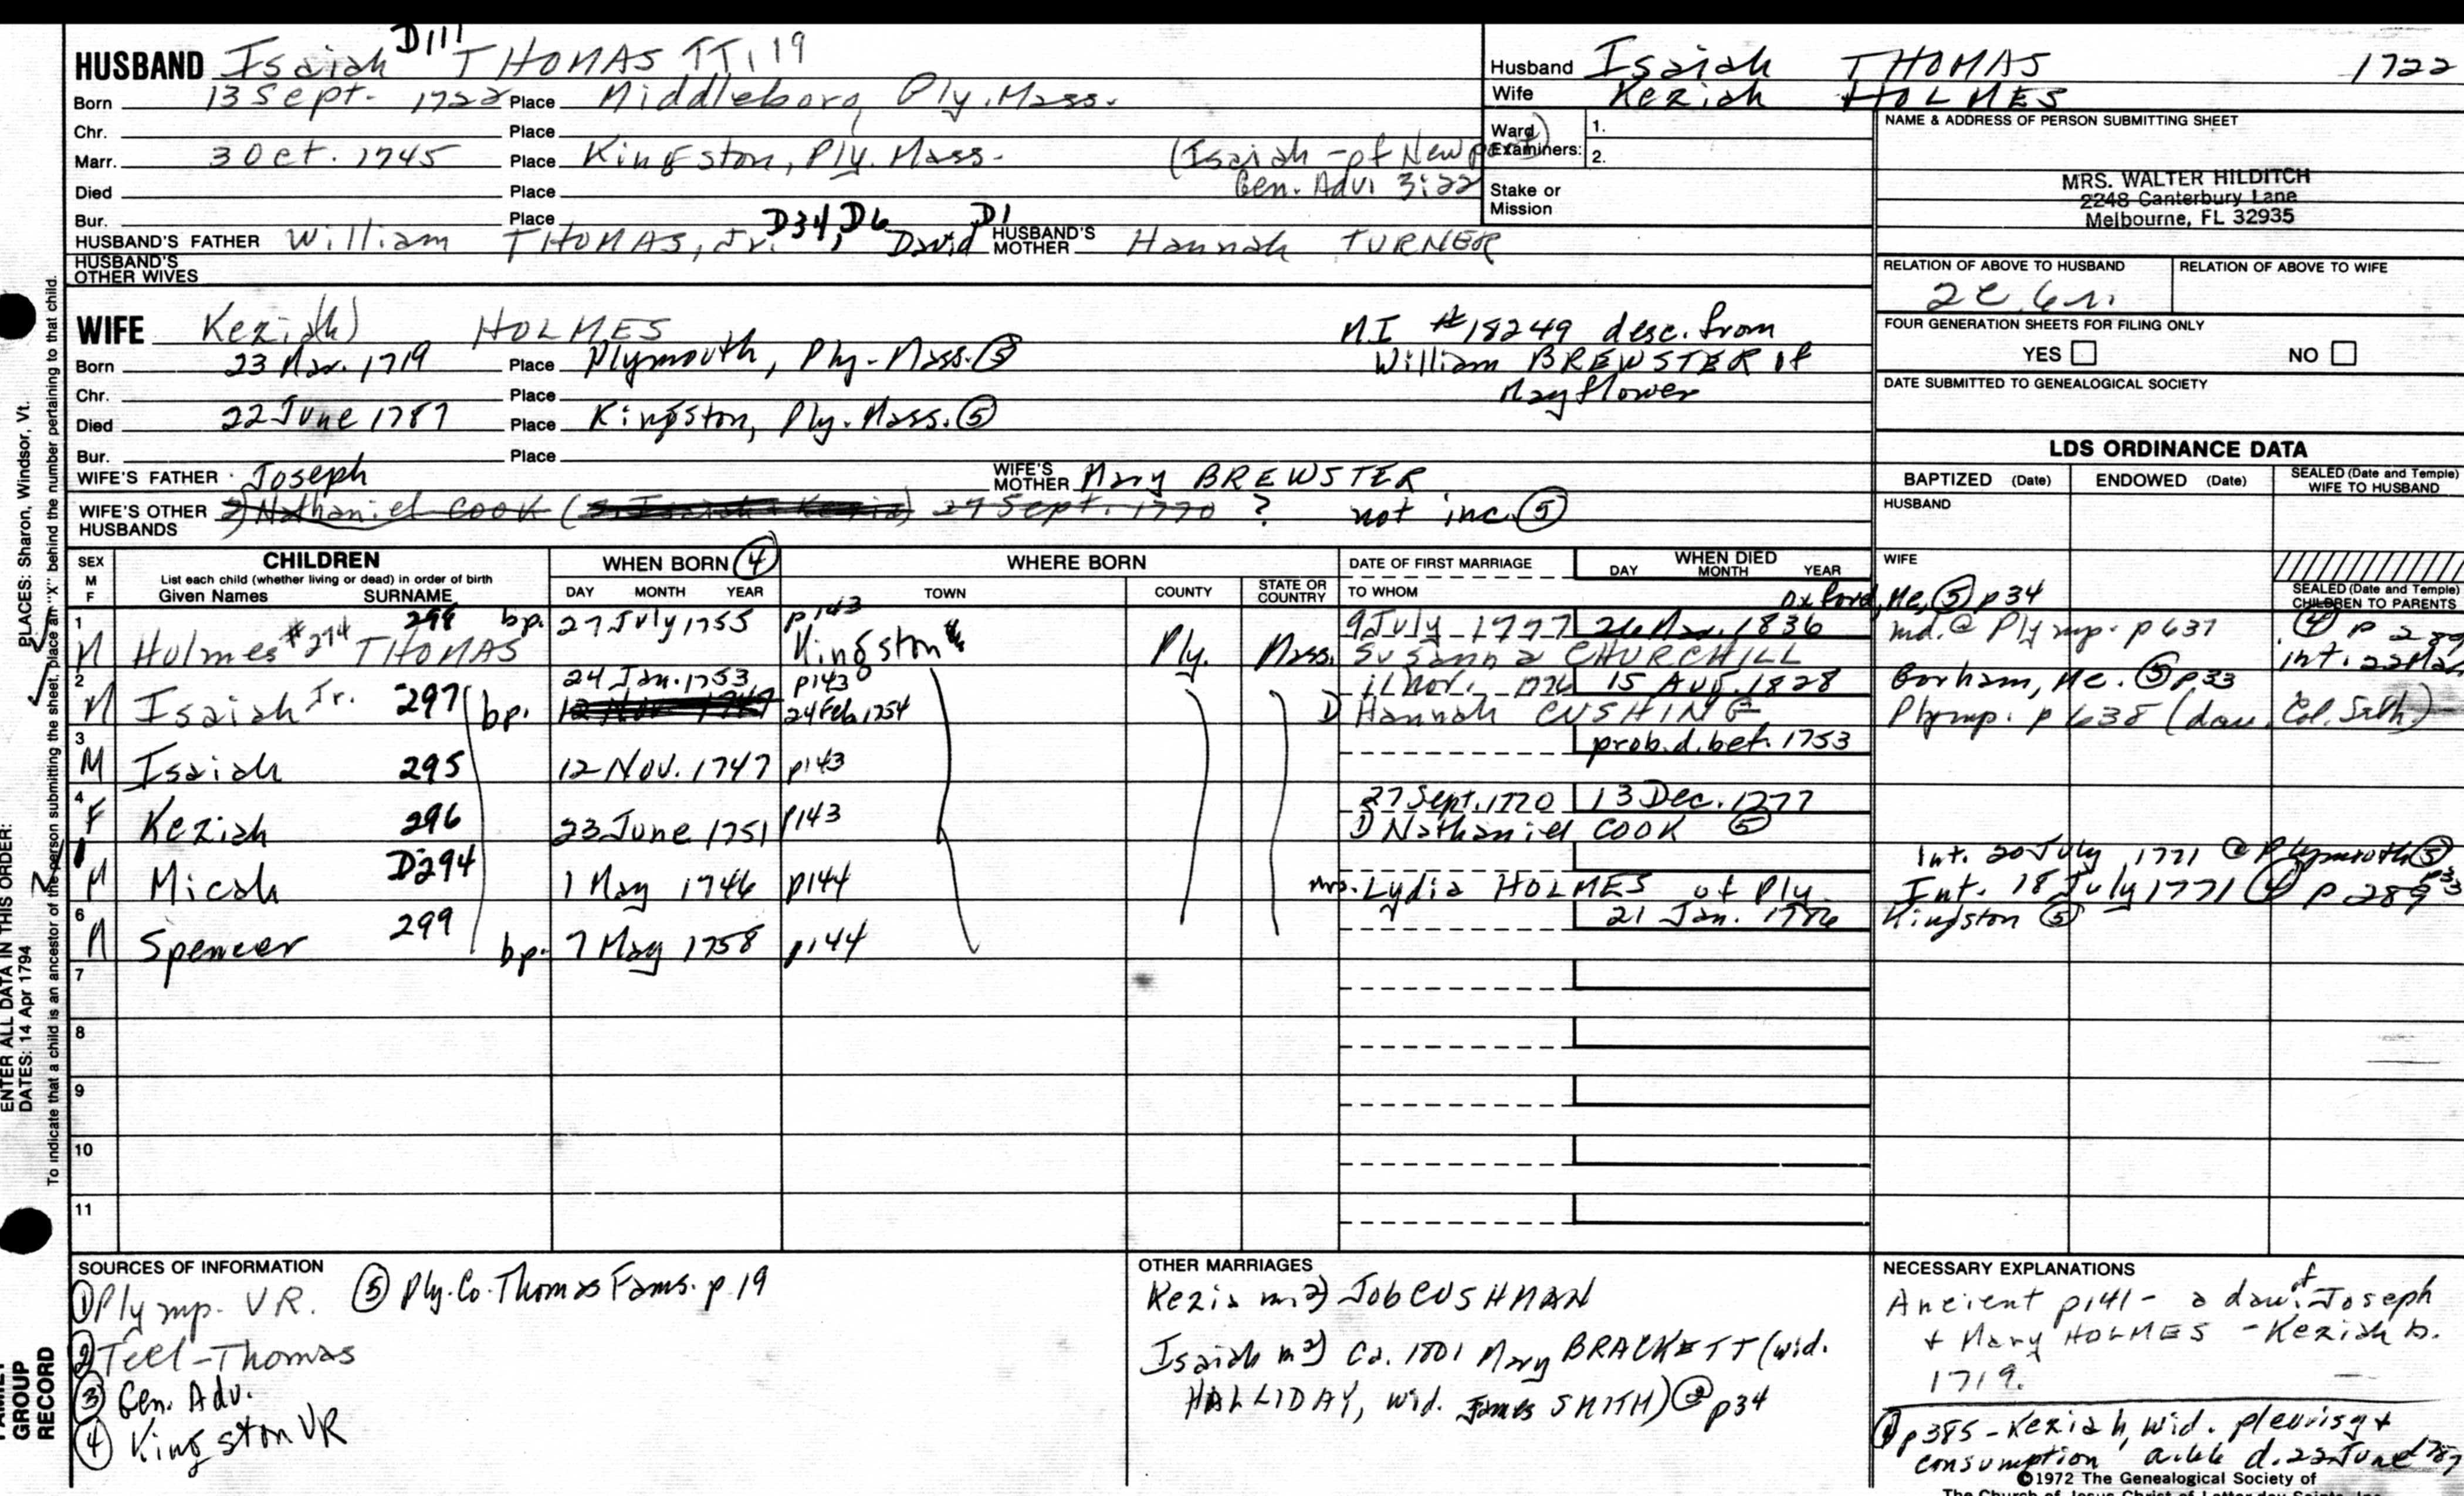 HUSBAND Isaiah D111 THOMAS TT, 19
Born 13 Sept. 1722 Place Middleboro, Ply. Mass.
Chr. Place
Marr. 3 Oct. 1745 Place Kingston, Ply. Mass. (Isaiah - of Newport)
Gen. Adv. 3:22
Died Place
Bur. Place
HUSBAND'S FATHER William THOMAS, Jr. D34, D6, David D1 HUSBAND'S MOTHER Hannah TURNER
HUSBAND'S OTHER WIVES
Husband Isaiah THOMAS 1722
Wife Keziah HOLMES
Ward Examiners: 1.
2.
Stake or Mission
NAME & ADDRESS OF PERSON SUBMITTING SHEET
MRS. WALTER HILDITCH
2248 Canterbury Lane
Melbourne, FL 32935
RELATION OF ABOVE TO HUSBAND
RELATION OF ABOVE TO WIFE
2c 6r.
FOUR GENERATION SHEETS FOR FILING ONLY
YES NO
DATE SUBMITTED TO GENEALOGICAL SOCIETY
WIFE Kezi(ah) HOLMES
MI #18249 desc. from
William BREWSTER of
Mayflower
Born 23 Mar. 1719 Place Plymouth, Ply. Mass. ⑤
Chr. Place
Died 22 June 1787 Place Kingston, Ply. Mass. ⑤
Bur. Place
WIFE'S FATHER Joseph WIFE'S MOTHER Mary BREWSTER
WIFE'S OTHER HUSBANDS 2) Nathaniel COOK 27 Sept. 1770 ? not inc. ⑤
LDS ORDINANCE DATA
BAPTIZED (Date) ENDOWED (Date) SEALED (Date and Temple) WIFE TO HUSBAND
HUSBAND
WIFE
SEALED (Date and Temple) CHILDREN TO PARENTS
SEX M F
CHILDREN
List each child (whether living or dead) in order of birth
Given Names SURNAME
WHEN BORN ④
DAY MONTH YEAR
WHERE BORN
TOWN COUNTY STATE OR COUNTRY
DATE OF FIRST MARRIAGE
TO WHOM
WHEN DIED
DAY MONTH YEAR
1 M Holmes #274 THOMAS 298 bp. 27 July 1755 p143 Kingston Ply. Mass. 9 July 1777 26 Mar. 1836 Oxford, Me. ⑤ p34
Susanna CHURCHILL md. @ Plymp. p 637 ④
2 M Isaiah Jr. 297 24 Jan. 1753 p143 11 Nov. 1776 15 Aug. 1828 Gorham, Me. ⑤ p33
bp. 24 Feb 1754 Hannah CUSHING Plymp. p 638 (dau. Col. Seth)
3 M Isaiah 295 12 Nov. 1747 p143 prob. d. bef. 1753
4 F Keziah 296 23 June 1751 p143 27 Sept. 1770 13 Dec. 1777
1) Nathaniel COOK ⑤
M Micah D294 1 May 1746 p144 Int. 20 July 1771 @ Plymouth ⑤
Mrs. Lydia HOLMES of Ply. Int. 18 July 1771 ④ p 289
6 M Spencer 299 bp. 7 May 1758 p144 21 Jan. Kingston ⑤
7
8
9
10
11
SOURCES OF INFORMATION
① Plymp. VR. ⑤ Ply. Co. Thomas Fams. p. 19
② Teel-Thomas
③ Gen. Adv.
④ Kingston VR
OTHER MARRIAGES
Kezia m. 2) Job CUSHMAN
Isaiah m 2) Ca. 1801 Mary BRACKETT (wid.
HALLIDAY, wid. James SMITH) p34
NECESSARY EXPLANATIONS
Ancient p141 - a dau. of Joseph
+ Mary HOLMES - Keziah b.
1719.
p385 - Keziah, wid. pleurisy +
consumption d. 22 June 1787
©1972 The Genealogical Society of
The Church of Jesus Christ of Latter-day Saints, Inc.
PLACES: Sharon, Windsor, Vt.
ENTER ALL DATA IN THIS ORDER:
DATES: 14 Apr 1794
To indicate that a child is an ancestor of the person submitting the sheet, place an "X" behind the number pertaining to that child.
FAMILY
GROUP
RECORD